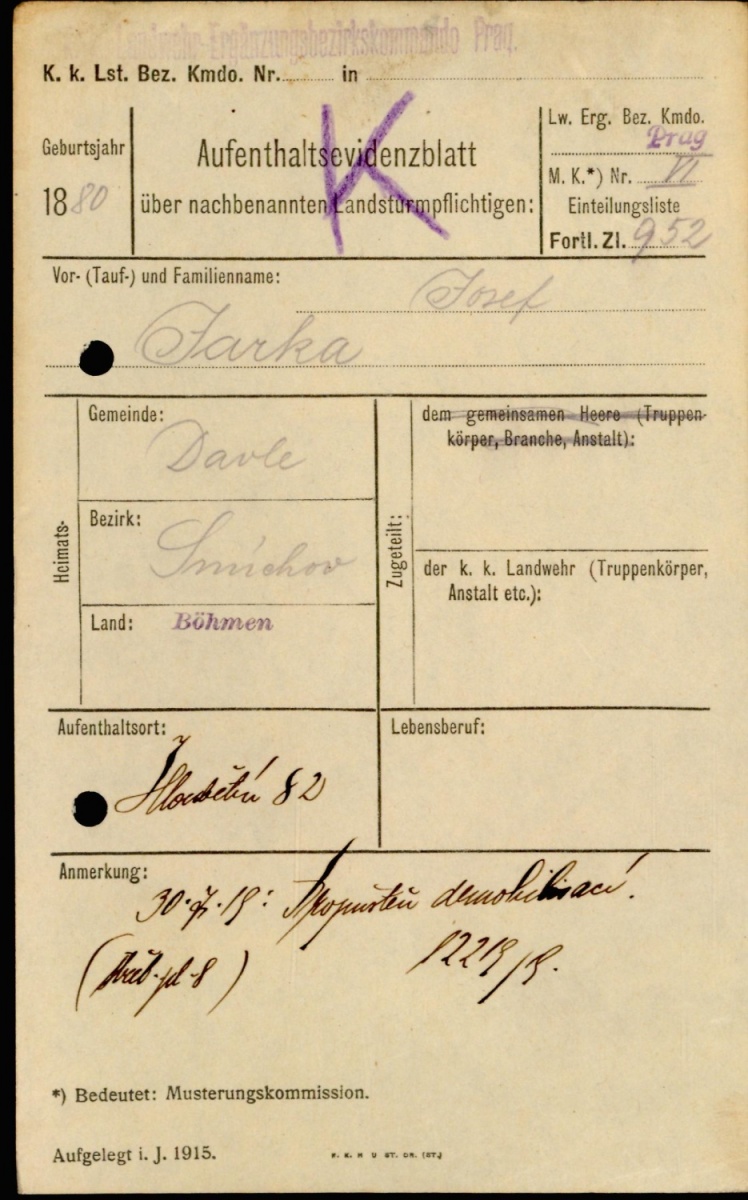 Landwehr-Ergänzungsbezirkskommando Prag.
K. k. Lst. Bez. Kmdo. Nr. in
Geburtsjahr
1880
Aufenthaltsevidenzblatt
über nachbenannten Landsturmpflichtigen:
K
Lw. Erg. Bez. Kmdo.
Prag
M. K.*) Nr. VI
Einteilungsliste
Fortl. Zl. 952
Vor- (Tauf-) und Familienname:
Josef
Jarka
Heimats-
Gemeinde:
Davle
Bezirk:
Smíchov
Land: Böhmen
Zugeteilt:
dem gemeinsamen Heere (Truppen-
körper, Branche, Anstalt):
der k. k. Landwehr (Truppenkörper,
Anstalt etc.):
Aufenthaltsort:
Hloubětín 82
Lebensberuf:
Anmerkung:
30.7.19: Propuštěn demobilisací.
1221/19.
*) Bedeutet: Musterungskommission.
Aufgelegt i. J. 1915.